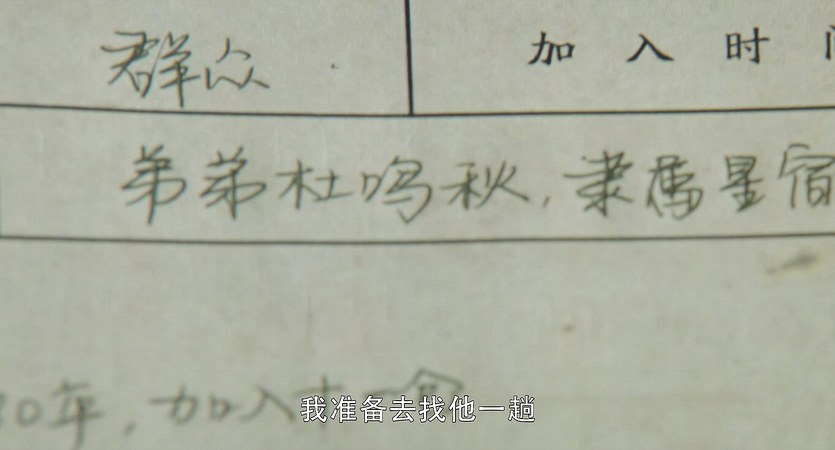 群众 加入时
弟弟杜鸣秋,隶属星宿
80年,加入
我准备去找他一趟